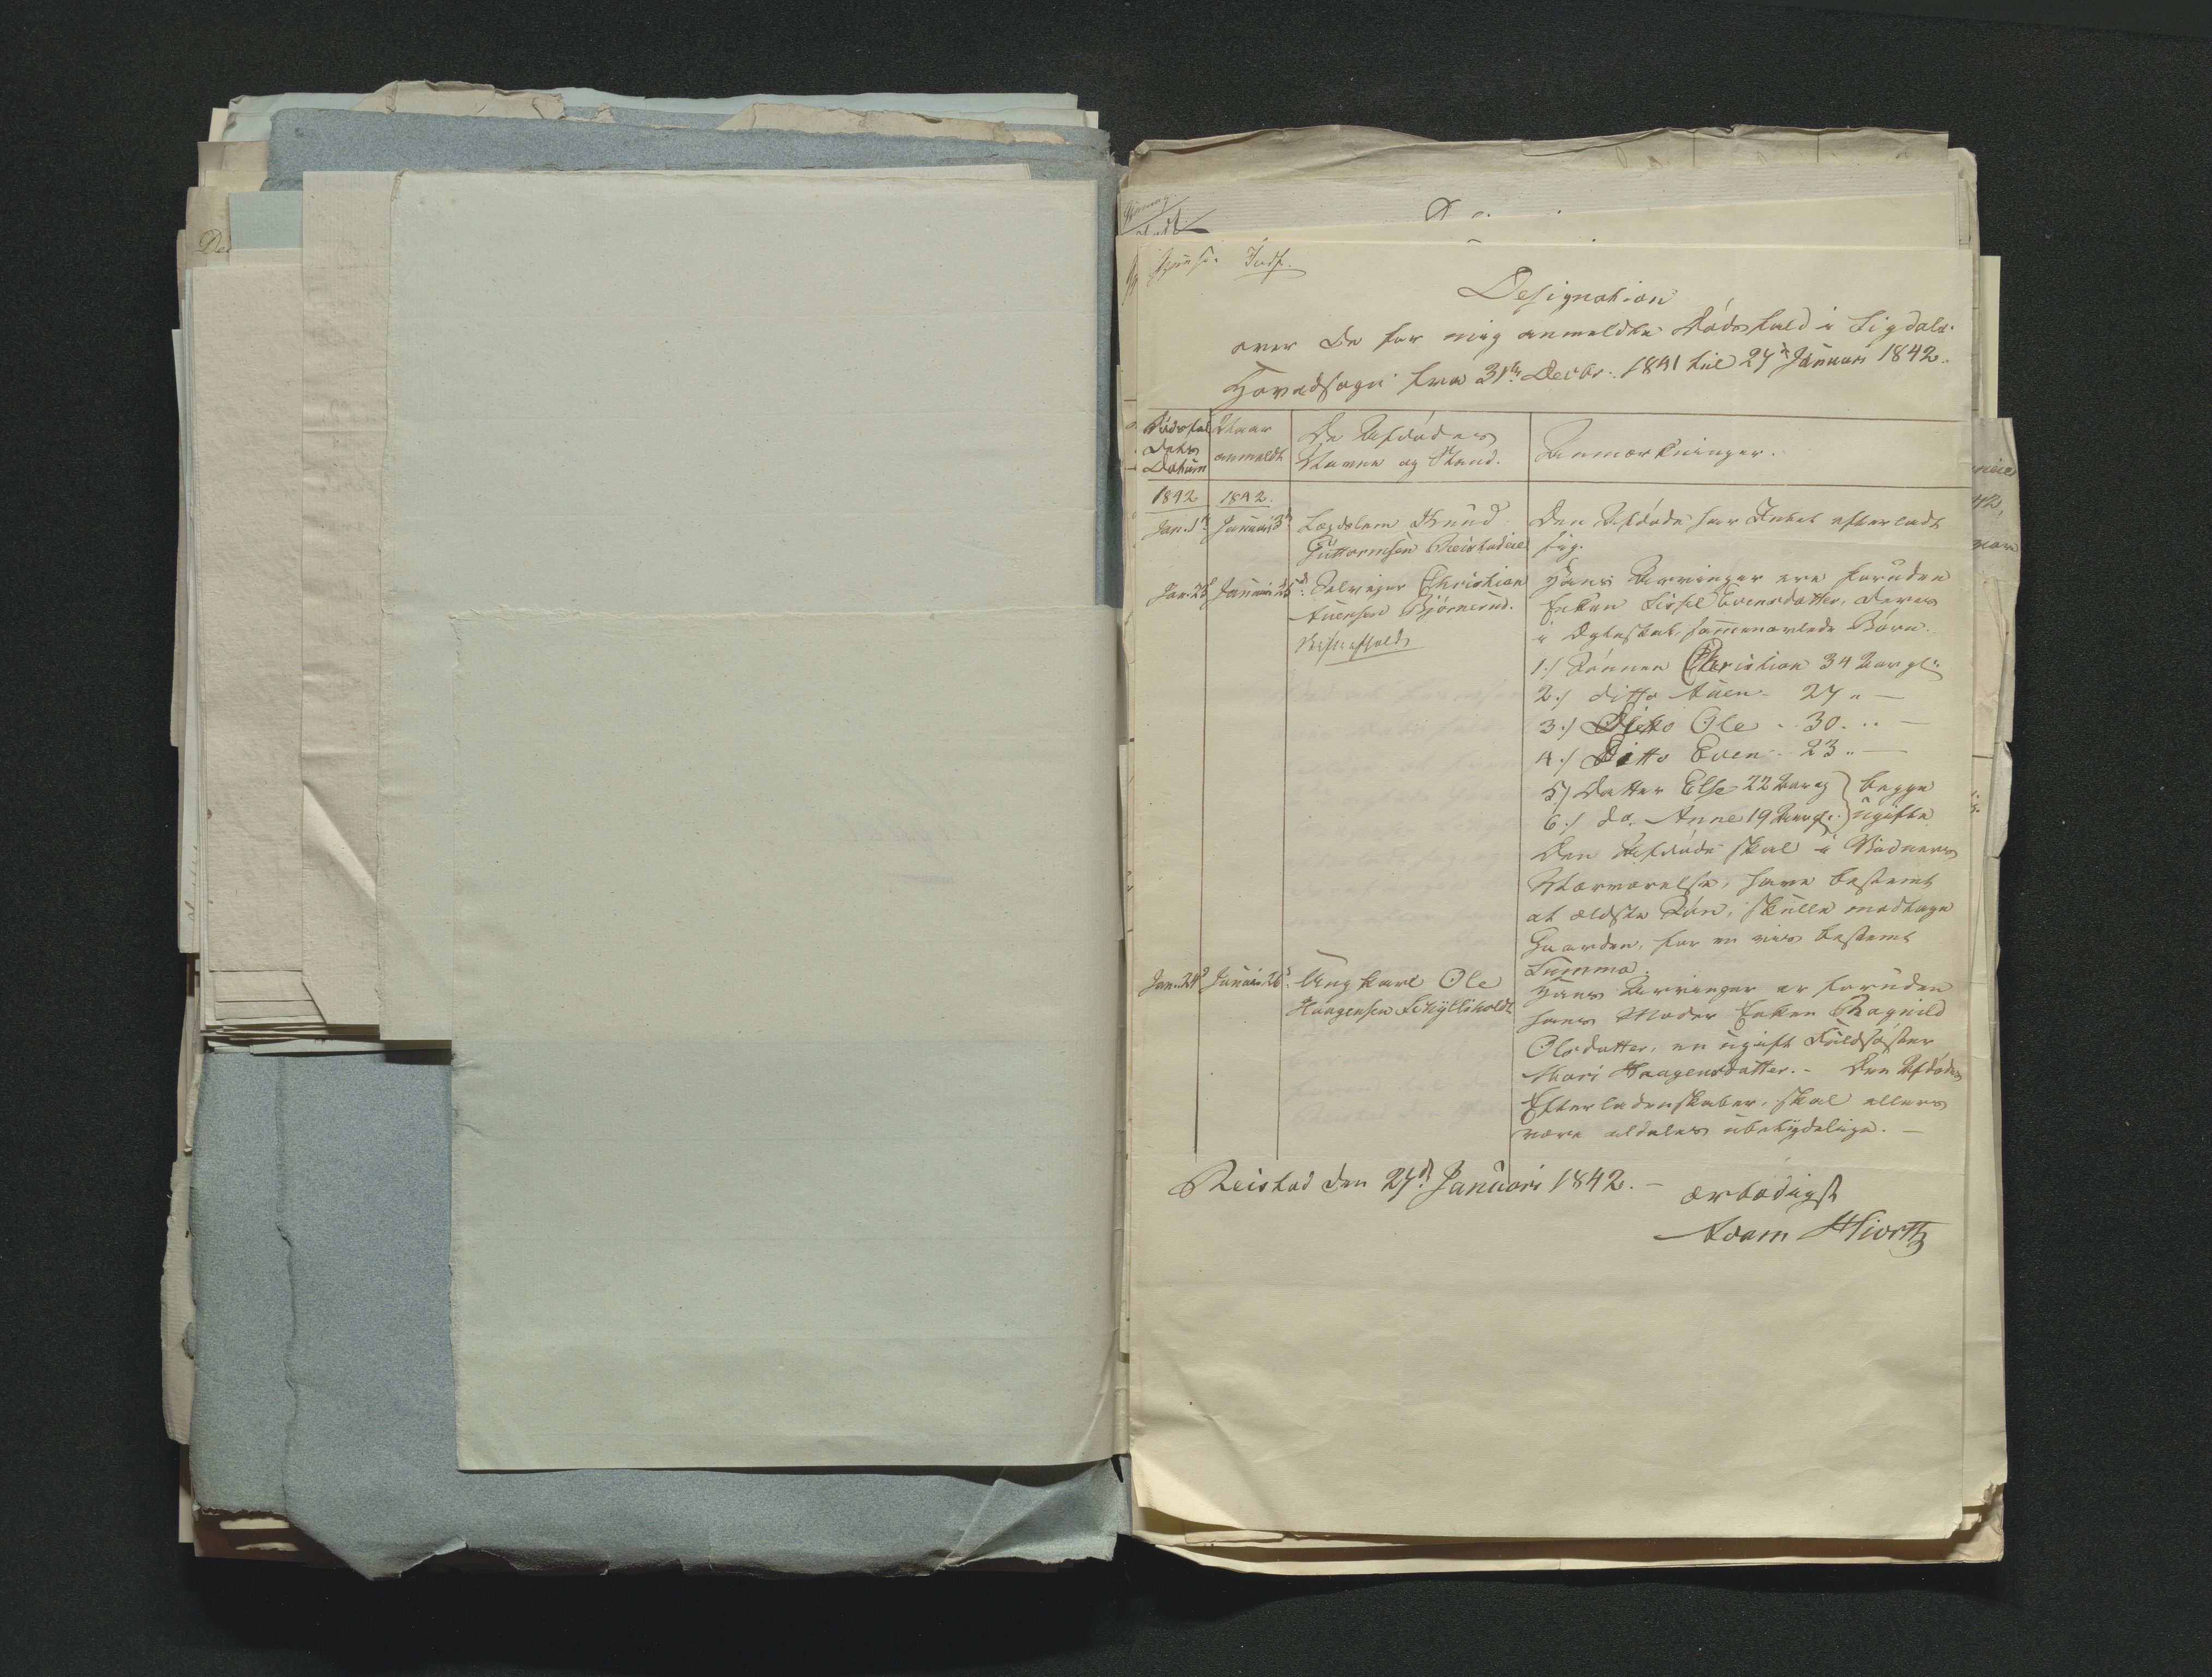 Designation
over de for mig anmeldte Dødsfald i Sigdals
Hovedsogn fra 31te Decbr. 1841 til 27d Januari 1842.
Dødsfal
dets
Datum
Naar
anmeldt
De Afdødes
Navne og Stand.
Anmærkninger.
1842
1842.
Jan. 1te
Januari 3d
Lægdslem Knud
Guttormsen Reistadeie
Den Afdøde har Intet efterladt
sig.
Jan. 23d
Januari 25d
Selveier Christian
Auensen Bjørnerud.
Hans Arvinger ere foruden
Enken Sissel Evensdatter, deres
i Ægteskab sammenavlede Børn.
1./ Sønnen Christian 34 Aar gl.
2./ ditto Auen - 27 " —
3./ Ditto Ole - 30. " —
4./ Ditto Even - 23 " —
5./ Datter Else 22 Aar g
6./ do. Anne 19 Aar gl.
begge
ugifte
Den Afdøde skal i Vidners
Nærværelse, have bestemt
at ældste Søn, skulle modtage
Gaarden, for en vis bestemt
Summa.
Jan. 24d
Januari 26d
Ung karl Ole
Haagensen
Hans Arvinger er foruden
hans Moder Enken Ragnild
Olsdatter, en ugift Fuldsøster
Mari Haagensdatter. - Den Afdødes
Efterladenskaber, skal ellers
være aldeles ubetydelige. —
Reistad den 27d Januari 1842. —
ærbødigst
Adam Hiorth